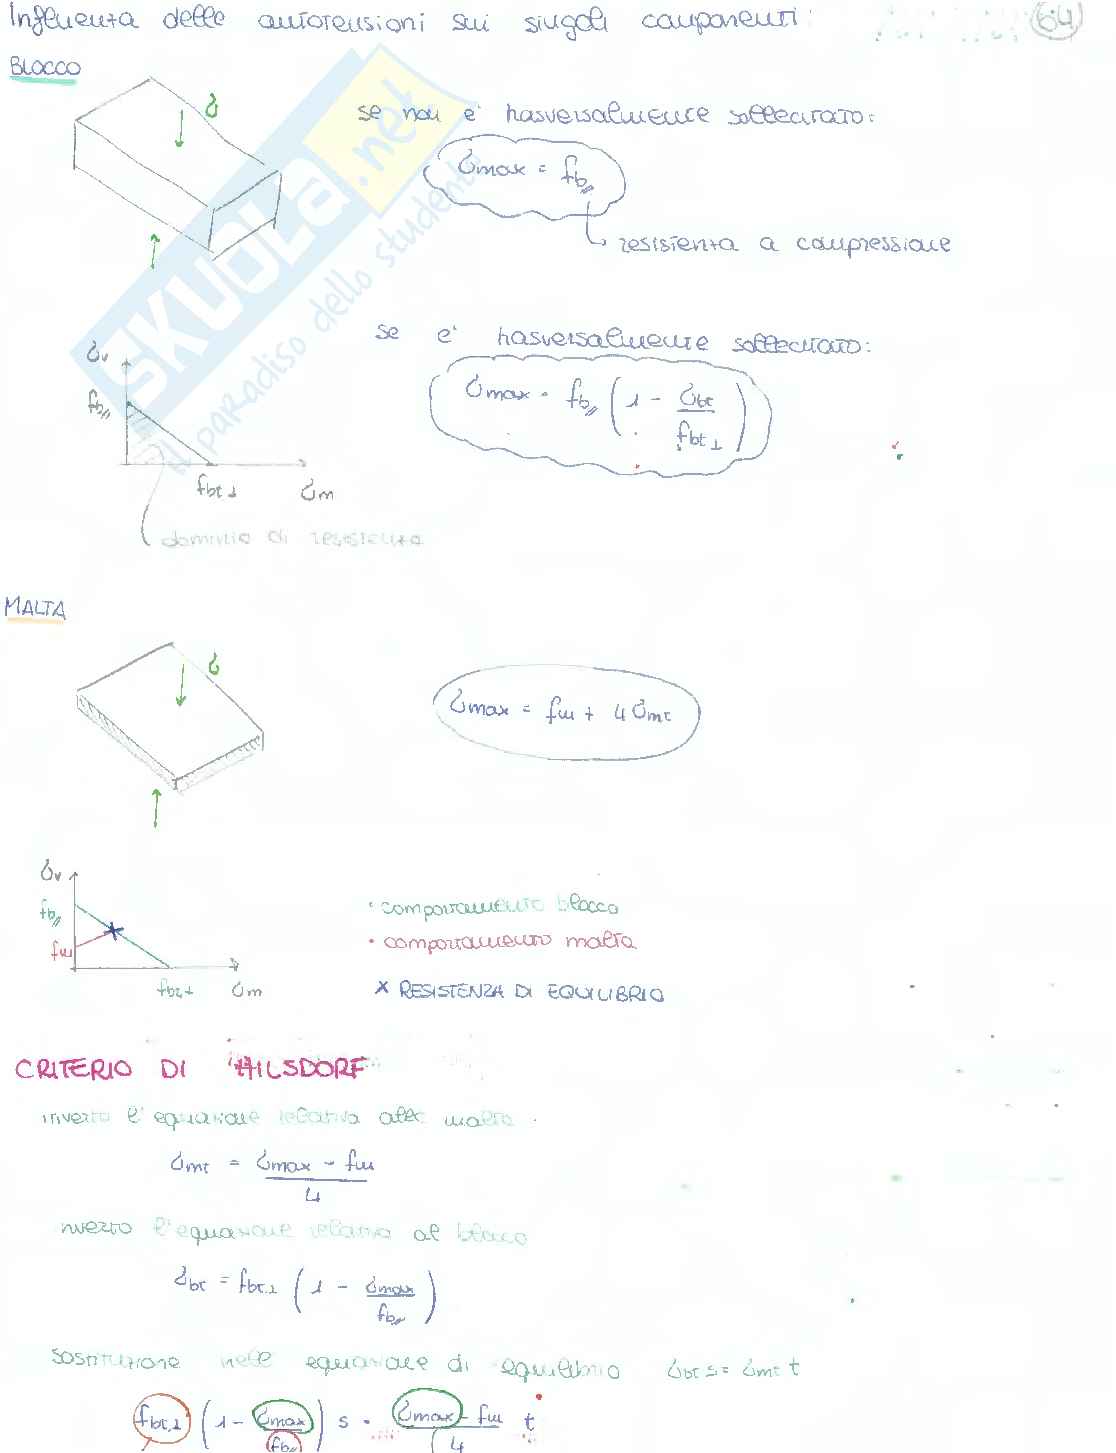 Influenza delle autotensioni sui singoli componenti: 64
BLOCCO
σ
se non e' trasversalmente sollecitato:
σmax = fb//
resistenza a compressione
se e' trasversalmente sollecitato:
σmax = fb// (1 - σbt / fbt⊥)
σv
fb//
fbt⊥ σm
dominio di resistenza
MALTA
σ
σmax = fm + 4σmt
σv
fb//
fm
fbt⊥ σm
• comportamento blocco
• comportamento malta
x RESISTENZA DI EQUILIBRIO
CRITERIO DI HILSDORF
inverto l'equazione relativa alla malta
σmt = (σmax - fm) / 4
inverto l'equazione relativa al blocco
σbt = fbt⊥ (1 - σmax / fb//)
sostituzione nelle equazione di equilibrio σbt s = σmt t
fbt⊥ (1 - σmax / fb//) s = (σmax - fm) / 4 t
SKUOLA.net
il paradiso dello studente